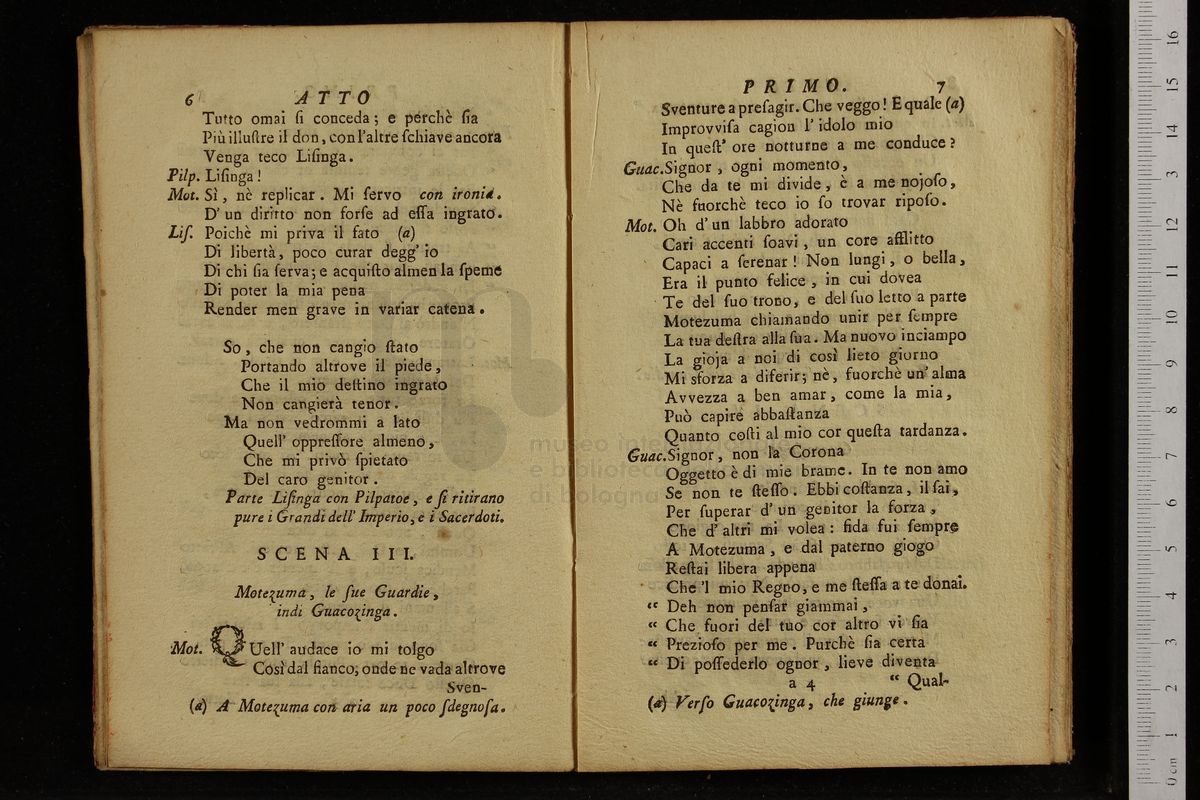 6 ATTO
Tutto omai ſi conceda; e perchè ſia
Più illuſtre il don, con l'altre ſchiave ancora
Venga teco Liſinga.
Pilp. Liſinga!
Mot. Sì, nè replicar. Mi ſervo con ironia.
D' un diritto non forſe ad eſſa ingrato.
Liſ. Poichè mi priva il fato (a)
Di libertà, poco curar degg' io
Di chi ſia ſerva; e acquiſto almen la ſpeme
Di poter la mia pena
Render men grave in variar catena.
So, che non cangio ſtato
Portando altrove il piede,
Che il mio deſtino ingrato
Non cangierà tenor.
Ma non vedrommi a lato
Quell' oppreſſore almeno,
Che mi privò ſpietato
Del caro genitor.
Parte Liſinga con Pilpatoe, e ſi ritirano
pure i Grandi dell' Imperio, e i Sacerdoti.
SCENA III.
Motezuma, le ſue Guardie,
indi Guacozinga.
Mot. QUell' audace io mi tolgo
Così dal fianco; onde ne vada altrove
Sven-
(a) A Motezuma con aria un poco ſdegnoſa.
PRIMO. 7
Sventure a preſagir. Che veggo! E quale (a)
Improvviſa cagion l' idolo mio
In queſt' ore notturne a me conduce?
Guac. Signor, ogni momento,
Che da te mi divide, è a me nojoſo,
Nè fuorchè teco io ſo trovar ripoſo.
Mot. Oh d' un labbro adorato
Cari accenti ſoavi, un core afflitto
Capaci a ſerenar! Non lungi, o bella,
Era il punto felice, in cui dovea
Te del ſuo trono, e del ſuo letto a parte
Motezuma chiamando unir per ſempre
La tua deſtra alla ſua. Ma nuovo inciampo
La gioja a noi di così lieto giorno
Mi sforza a diferir; nè, fuorchè un' alma
Avvezza a ben amar, come la mia,
Può capire abbaſtanza
Quanto coſti al mio cor queſta tardanza.
Guac. Signor, non la Corona
Oggetto è di mie brame. In te non amo
Se non te ſteſſo. Ebbi coſtanza, il ſai,
Per ſuperar d' un genitor la forza,
Che d' altri mi volea: fida fui ſempre
A Motezuma, e dal paterno giogo
Reſtai libera appena
Che 'l mio Regno, e me ſteſſa a te donai.
“ Deh non penſar giammai,
“ Che fuori del tuo cor altro vi ſia
“ Prezioſo per me. Purchè ſia certa
“ Di poſſederlo ognor, lieve diventa
a 4 “ Qual-
(a) Verſo Guacozinga, che giunge.